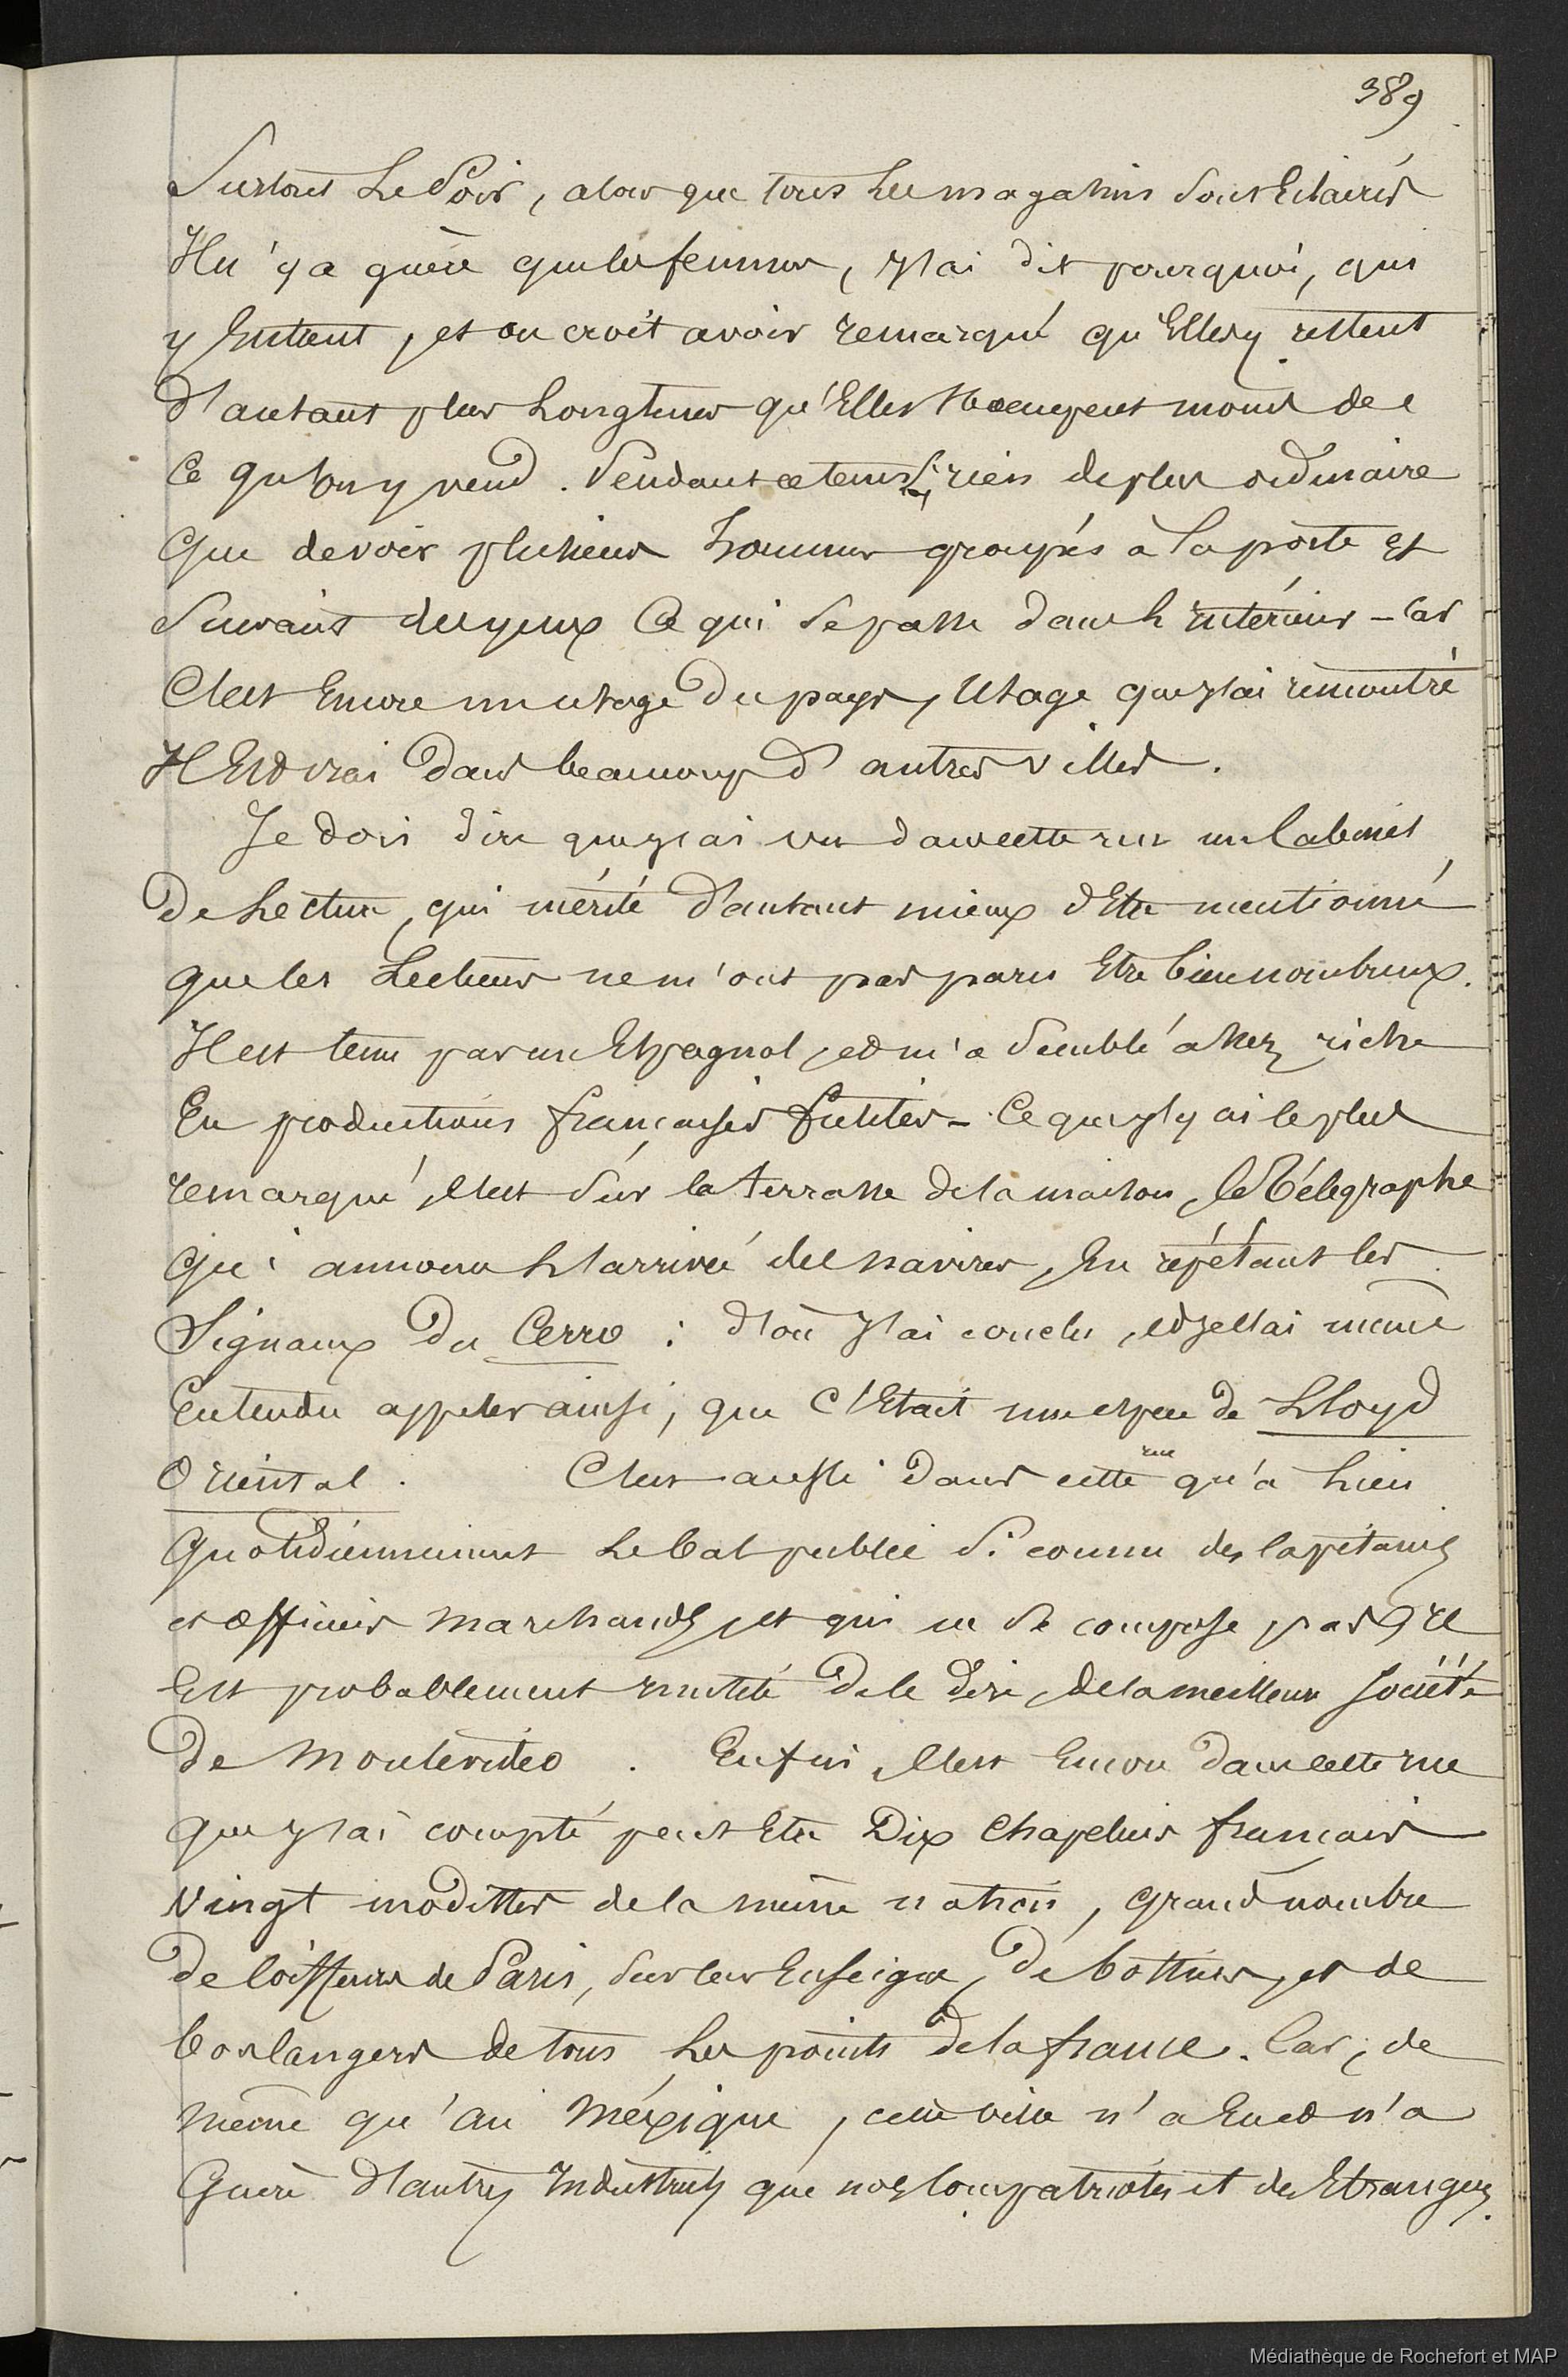 389
Surtout Le Soir, alors que tous Les magasins sont Eclairés
Il n'y a guère que les femmes, j'ai dit pourquoi, qui
y Entrent, et on croit avoir remarqué qu'Elles y restent
d'autant plus Longtems qu'Elles s'occupent moins de
Ce qu'on y vend. Pendant ce tems là rien de plus ordinaire
Que de voir plusieurs hommes groupés à la porte et
Suivant des yeux Ce qui se passe dans l'intérieur - Car
C'est Encore un usage du pays, Usage que j'ai rencontré
Il Est vrai dans beaucoup d'autres villes.
Je dois dire que j'ai vu dans cette rue un Cabinet
de Lecture, qui mérite d'autant mieux d'Etre mentionné
que les Lecteurs ne m'ont pas paru Etre bien nombreux.
Il est tenu par un Espagnol, et m'a semblé assez riche
En productions françaises futiles - Ce que j'y ai le plus
remarqué, c'est sur la terrasse de la maison, le Télégraphe
Qui annonce L'arrivée des navires, En répétant les
Signaux du Cerro : d'où j'ai conclu, et je l'ai même
Entendu appeler ainsi, que C'Etait une espèce de Lloyd
Oriental. C'est aussi dans cette rue qu'a Lieu
Quotidiennement Le bal public si connu des Capitaines
et officiers marchands, et qui ne se compose pas, il
Est probablement inutile de le dire, de la meilleure société
de Montevideo. Enfin, c'est Encore dans cette rue
que j'ai compté peut Etre Dix Chapeliers français
Vingt modistes de la même nation, grand nombre
de Coiffeurs de Paris, sur leur Enseigne, de bottiers, et de
boulangers de tous Les points de la france. Car, de
même qu'au Méxique, cette ville n'a Eu et n'a
Guère d'autres Industriels que nos Compatriotes et des Etrangers.
Médiathèque de Rochefort et MAP